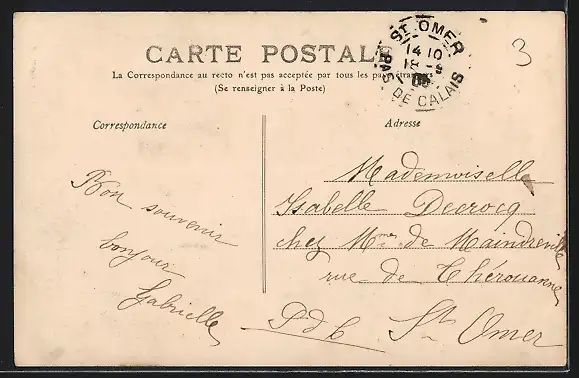 CARTE POSTALE
ST OMER
14 10
18 -8
PAS DE CALAIS
3
La Correspondance au recto n'est pas acceptée par tous les pays étrangers
(Se renseigner à la Poste)
Correspondance
Adresse
Bon souvenir
bonjour
Gabrielle
Mademoiselle
Isabelle Decrocq
chez Mme de Maindreville
rue de Thérouanne
PdC St Omer